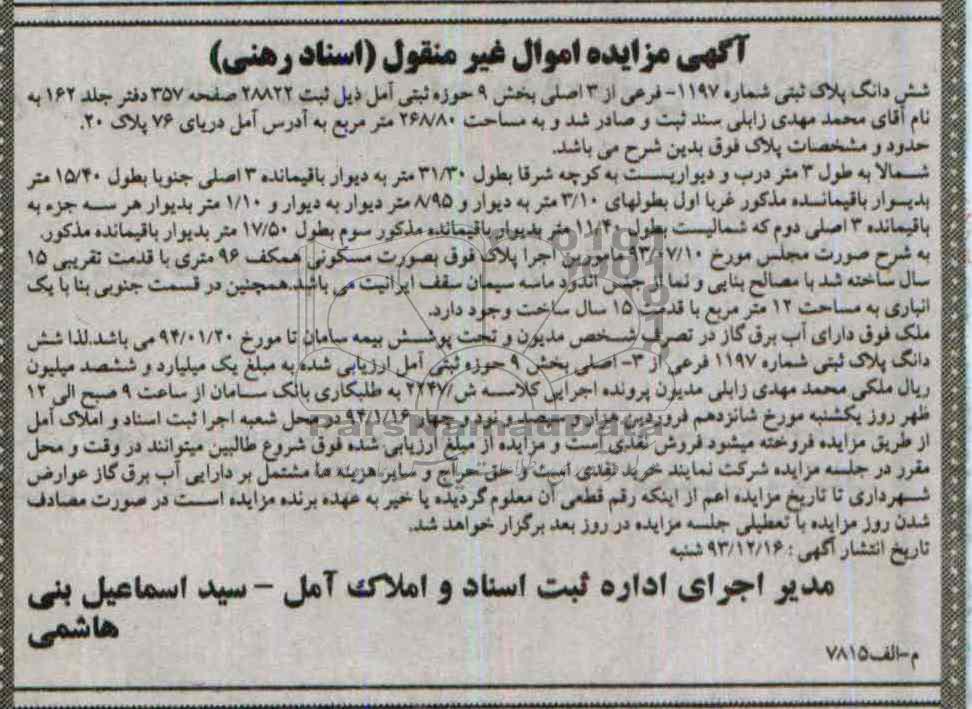 آگهی مزایده اموال غیر منقول (اسناد رهنی)
شش دانگ پلاک ثبتی شماره ۱۱۹۷- فرعی از ۳ اصلی بخش ۹ حوزه ثبتی آمل ذیل ثبت ۲۸۸۲۲ صفحه ۳۵۷ دفتر جلد ۱۶۲ به
نام آقای محمد مهدی زابلی سند ثبت و صادر شد و به مساحت ۲۶۸/۸۰ متر مربع به آدرس آمل دریای ۷۶ پلاک ۲۰.
حدود و مشخصات پلاک فوق بدین شرح می باشد.
شمالا به طول ۳ متر درب و دیواریست به کوچه شرقا بطول ۳۱/۳۰ متر به دیوار باقیمانده ۳ اصلی جنوبا بطول ۱۵/۴۰ متر
بدیوار باقیمانده مذکور غربا اول بطولهای ۳/۱۰ متر به دیوار و ۸/۹۵ متر دیوار به دیوار و ۱/۱۰ متر بدیوار هر سه جزء به
باقیمانده ۳ اصلی دوم که شمالیست بطول ۱۱/۴۰ متر بدیوار باقیمانده مذکور سوم بطول ۱۷/۵۰ متر بدیوار باقیمانده مذکور.
به شرح صورت مجلس مورخ ۹۳/۰۷/۱۰ مامورین اجرا پلاک فوق بصورت مسکونی همکف ۹۶ متری با قدمت تقریبی ۱۵
سال ساخته شد با مصالح بنایی و نما از جنس اندود ماسه سیمان سقف ایرانیت می باشد.همچنین در قسمت جنوبی بنا با یک
انباری به مساحت ۱۲ متر مربع با قدمت ۱۵ سال ساخت وجود دارد.
ملک فوق دارای آب برق گاز در تصرف شخص مدیون و تحت پوشش بیمه سامان تا مورخ ۹۴/۰۱/۲۰ می باشد.لذا شش
دانگ پلاک ثبتی شماره ۱۱۹۷ فرعی از ۳- اصلی بخش ۹ حوزه ثبتی آمل ارزیابی شده به مبلغ یک میلیارد و ششصد میلیون
ریال ملکی محمد مهدی زابلی مدیون پرونده اجرایی کلاسه ش/۲۲۴۷ به طلبکاری بانک سامان از ساعت ۹ صبح الی ۱۲
ظهر روز یکشنبه مورخ شانزدهم فروردین هزار و سیصد و نود و چهار ۹۴/۱/۱۶ در محل شعبه اجرا ثبت اسناد و املاک آمل
از طریق مزایده فروخته میشود فروش نقدی است و مزایده از مبلغ ارزیابی شده فوق شروع طالبین میتوانند در وقت و محل
مقرر در جلسه مزایده شرکت نمایند خرید نقدی است و حق حراج و سایر هزینه ها مشتمل بر دارایی آب برق گاز عوارض
شهرداری تا تاریخ مزایده اعم از اینکه رقم قطعی آن معلوم گردیده یا خیر به عهده برنده مزایده است در صورت مصادف
شدن روز مزایده با تعطیلی جلسه مزایده در روز بعد برگزار خواهد شد.
تاریخ انتشار آگهی : ۹۳/۱۲/۱۶ شنبه
مدیر اجرای اداره ثبت اسناد و املاک آمل – سید اسماعیل بنی
هاشمی
م-الف۷۸۱۵
ParsNamadData